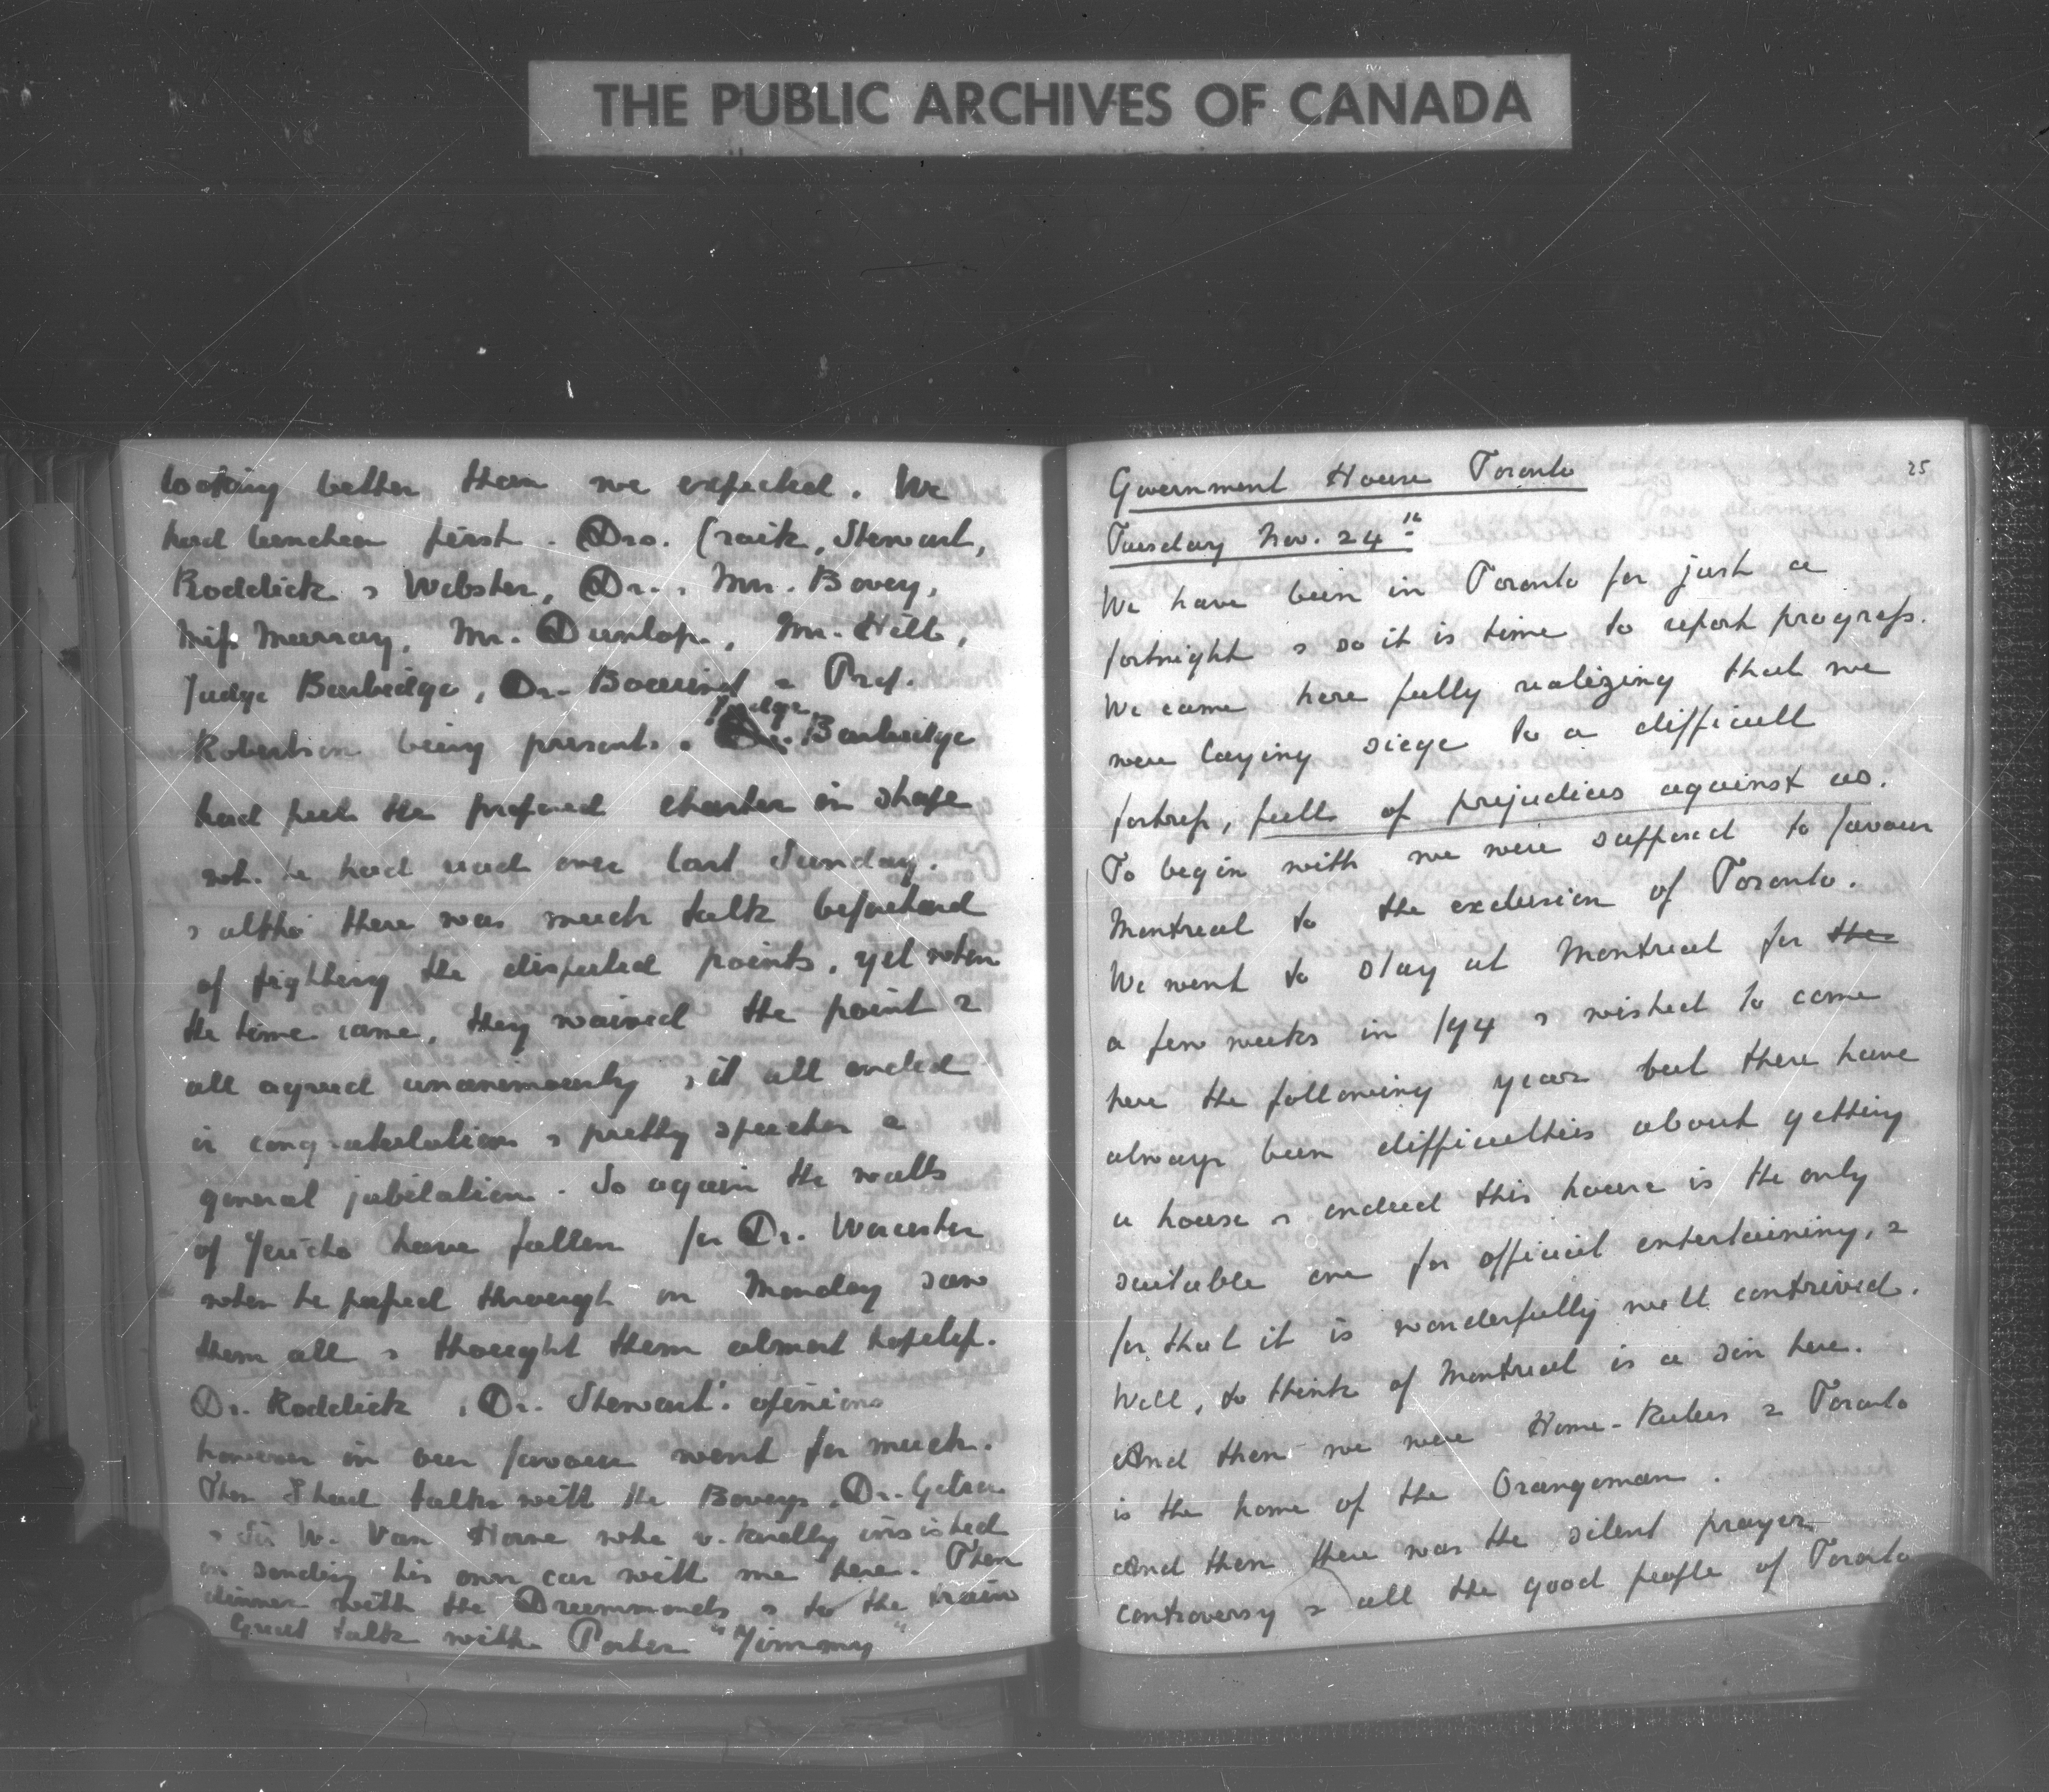 THE PUBLIC ARCHIVES OF CANADA
looking better than we expected. We
had luncheon first. Drs. Craik, Stewart,
Roddick & Webster, Dr. & Mrs. Bovey,
Miss Murray, Mr. Dunlop, Mr. Hill,
Judge Burbidge, Dr. Bourinot & Prof.
Robertson being present. Judge Burbidge
had put the proposed charter in shape
wh. he had read over last Sunday.
& altho' there was much talk beforehand
of fighting the disputed points, yet when
the time came, they waived the point &
all agreed unanimously & it all ended
in congratulations & pretty speeches &
general jubilation. So again the walls
of Jericho have fallen for Dr. Worcester
when he passed through on Monday saw
them all & thought them almost hopeless.
Dr. Roddick & Dr. Stewart's opinions
however in our favour went for much.
Then I had talks with the Boveys, Dr.
& Sir W. Van Horne who v. kindly insisted
on sending his own car with me here. Then
dinner with the Drummonds & to the train
Great talk with Porter "Jimmy"
25
Government House Toronto
Tuesday Nov. 24th
We have been in Toronto for just a
fortnight & so it is time to report progress.
We came here fully realizing that we
were laying siege to a difficult
fortress, full of prejudices against us.
To begin with we were supposed to favour
Montreal to the exclusion of Toronto.
We went to stay at Montreal for the
a few weeks in /94 & wished to come
here the following year but there have
always been difficulties about getting
a house & indeed this house is the only
suitable one for official entertaining, &
for that it is wonderfully well contrived.
Well, to think of Montreal is a sin here.
And then we were Home-Rulers & Toronto
is the home of the Orangeman.
And then there was the silent prayer
controversy & all the good people of Toronto